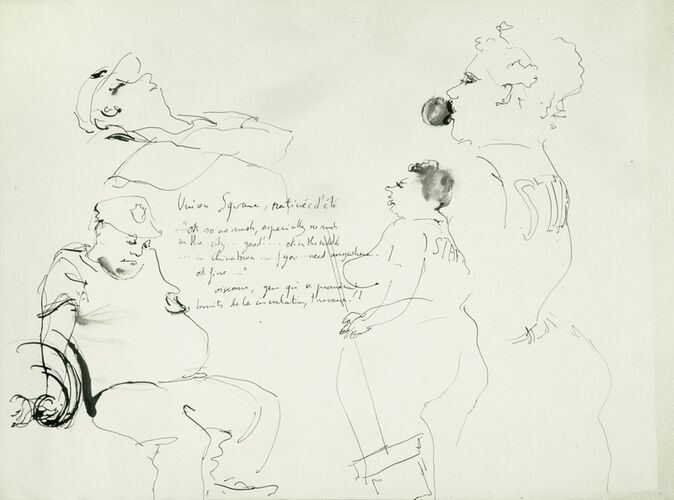 Union Square, matinée d'été
"ok so no rush, especially no rush
in the city... good!... ok in the middle
... in chinatown... f you need anywhere.
ok fine..."
oiseaux, gens qui se promènent
bruits de la circulation, travaux!!
STAF
STA